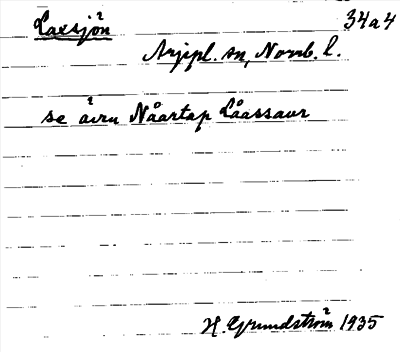 Laxsjön 34a4
Arjepl. sn, Norrb. l.
se ävru Nåartap Låassaur
H. Grundström 1935